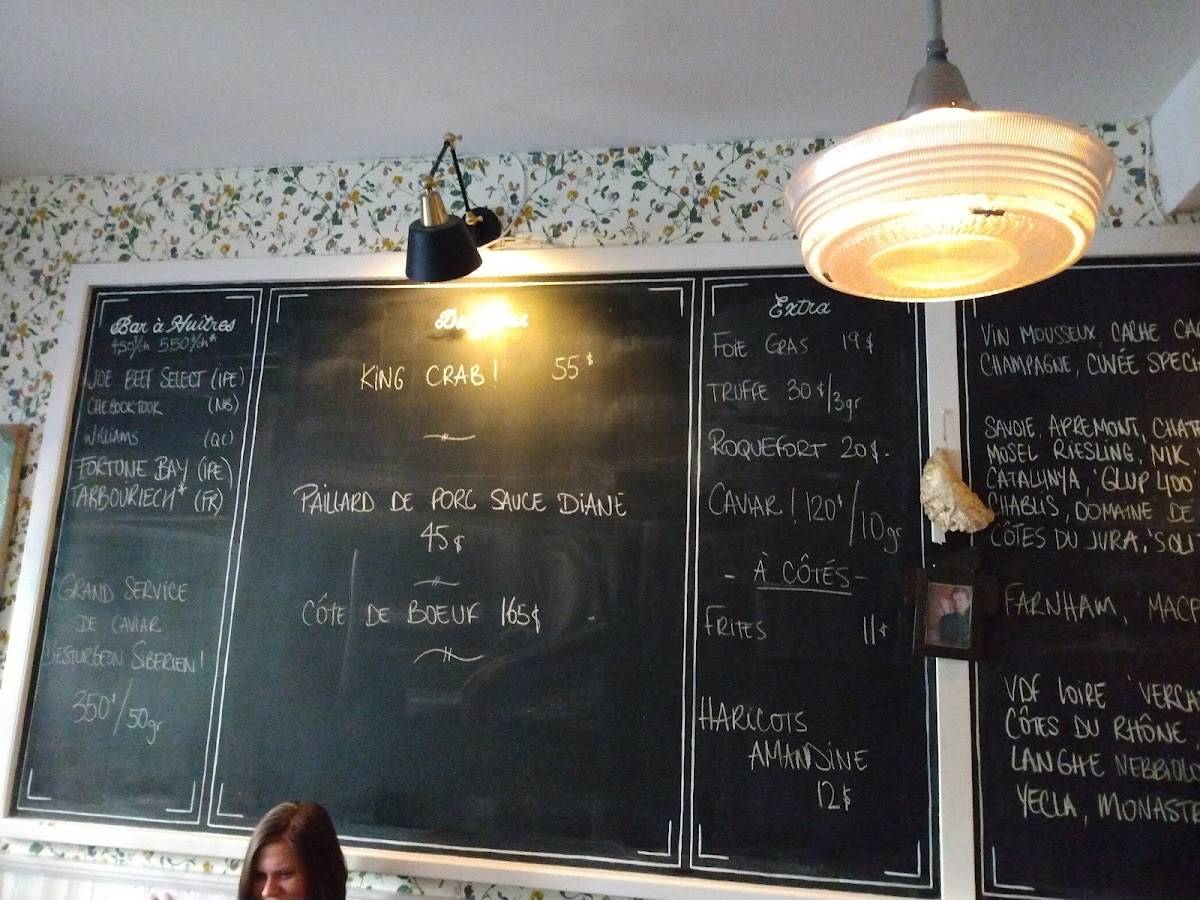 Bar à Huîtres
JOE BEEF SELECT (IPE)
CHEBOOKTOOK (NB)
WILLIAMS (QC)
FORTUNE BAY (IPE)
TARBOURIECH* (FR)
GRAND SERVICE
DE CAVIAR
D'ESTURGEON SIBERIEN!
350$/50gr
KING CRAB! 55$
PAILLARD DE PORC SAUCE DIANE
45$
CÔTE DE BOEUF 165$
Extra
FOIE GRAS 19$
TRUFFE 30$/3gr
ROQUEFORT 20$-
CAVIAR! 120$/10gr
- À CÔTÉS -
FRITES 11$
HARICOTS
AMANDINE
12$
VIN MOUSSEUX, CACHE CA
CHAMPAGNE, CUVÉE SPECI
SAVOIE, APREMONT, CHAT
MOSEL RIESLING, NIK
CATALUNYA, 'GLUP 400
CHABLIS, DOMAINE DE
CÔTES DU JURA, 'SOLI
FARNHAM, 'MAC
VDF LOIRE 'VERCH
CÔTES DU RHÔNE
LANGHE NEBBIOLO
YECLA, MONASTR